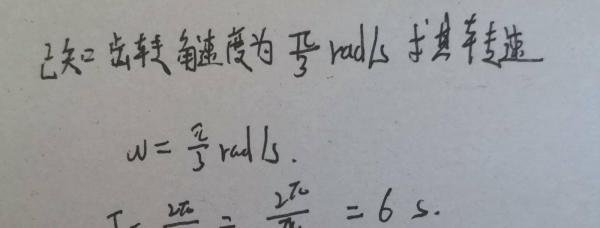 已知：齿转角速度为 π/3 rad/s 求其转速
ω = π/3 rad/s.
T = 2π/ω = 2π/(π/3) = 6 s.